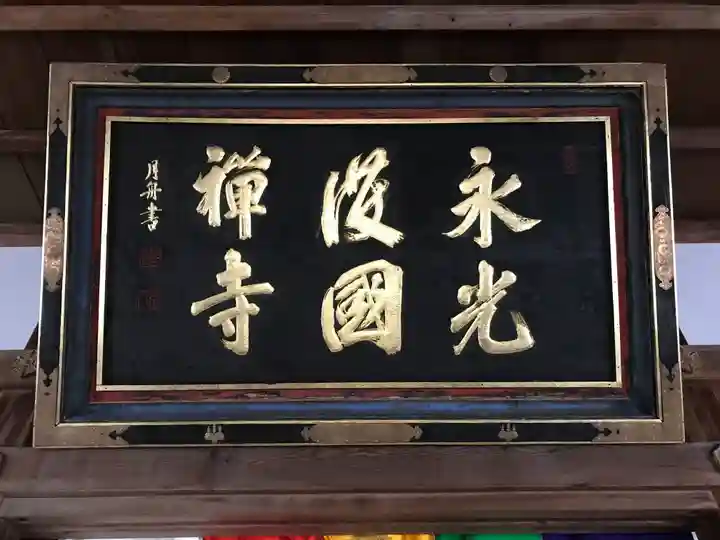 永光
護國
禪寺
月舟書